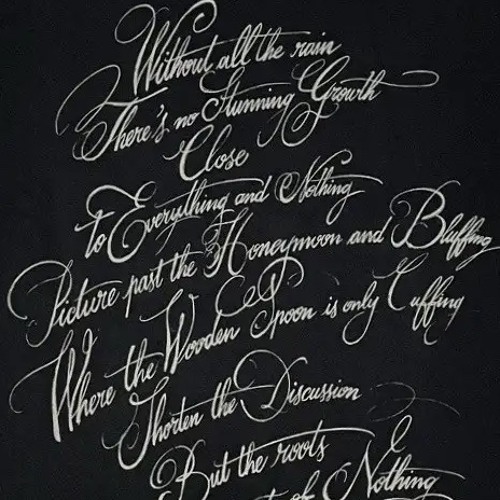 Without all the rain
There's no Stunning Growth
Close
to Everything and Nothing
Picture past the Honeymoon and Bluffing
Where the Wooden Spoon is only Cuffing
Shorten the Discussion
But the roots
of Nothing